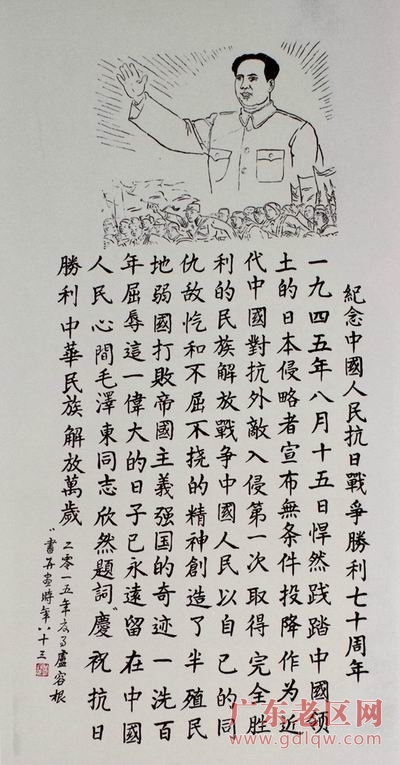 紀念中國人民抗日戰爭勝利七十周年
一九四五年八月十五日悍然践踏中國领
土的日本侵略者宣布無条件投降作为近
代中國對抗外敵入侵第一次取得完全胜
利的民族解放戰争中國人民以自己的同
仇敌忾和不屈不挠的精神創造了半殖民
地弱國打敗帝國主義强国的奇迹一洗百
年屈辱這一偉大的日子已永遠留在中國
人民心間毛澤東同志欣然題詞“慶祝抗日
勝利中華民族解放萬歲”
二零一五年夏月盧容根
書并画時年八十三
广东老区网
www.gdlqw.com